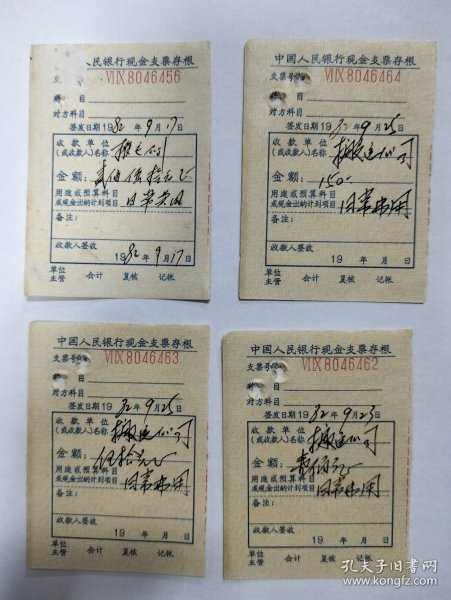 人民银行现金支票存根
支 VIIX8046456
科 目
对方科目
签发日期1982年9月17日
收款单位
(或收款人)名称
金额:
用途或预算科目
或现金出纳计划项目 日常
备注:
收款人签收
1982年9月17日
单位主管 会计 复核 记帐
中国人民银行现金支票存根
支票号 VIIX8046464
科 目
对方科目
签发日期1982年9月25日
收款单位
(或收款人)名称 搬运公司
金额: 150
用途或预算科目
或现金出纳计划项目 日常费用
备注:
收款人签收
19 年 月 日
单位主管 会计 复核 记帐
中国人民银行现金支票存根
支票号 VIIX8046463
科 目
对方科目
签发日期1982年9月25日
收款单位
(或收款人)名称 搬运公司
金额: 伍拾元
用途或预算科目
或现金出纳计划项目 日常费用
备注:
收款人签收
19 年 月 日
单位主管 会计 复核 记帐
中国人民银行现金支票存根
支票号 VIIX8046462
科 目
对方科目
签发日期1982年9月23日
收款单位
(或收款人)名称 搬运公司
金额:
用途或预算科目
或现金出纳计划项目 日常费用
备注:
收款人签收
19 年 月 日
单位主管 会计 复核 记帐
孔夫子旧书网
www.kongfz.com